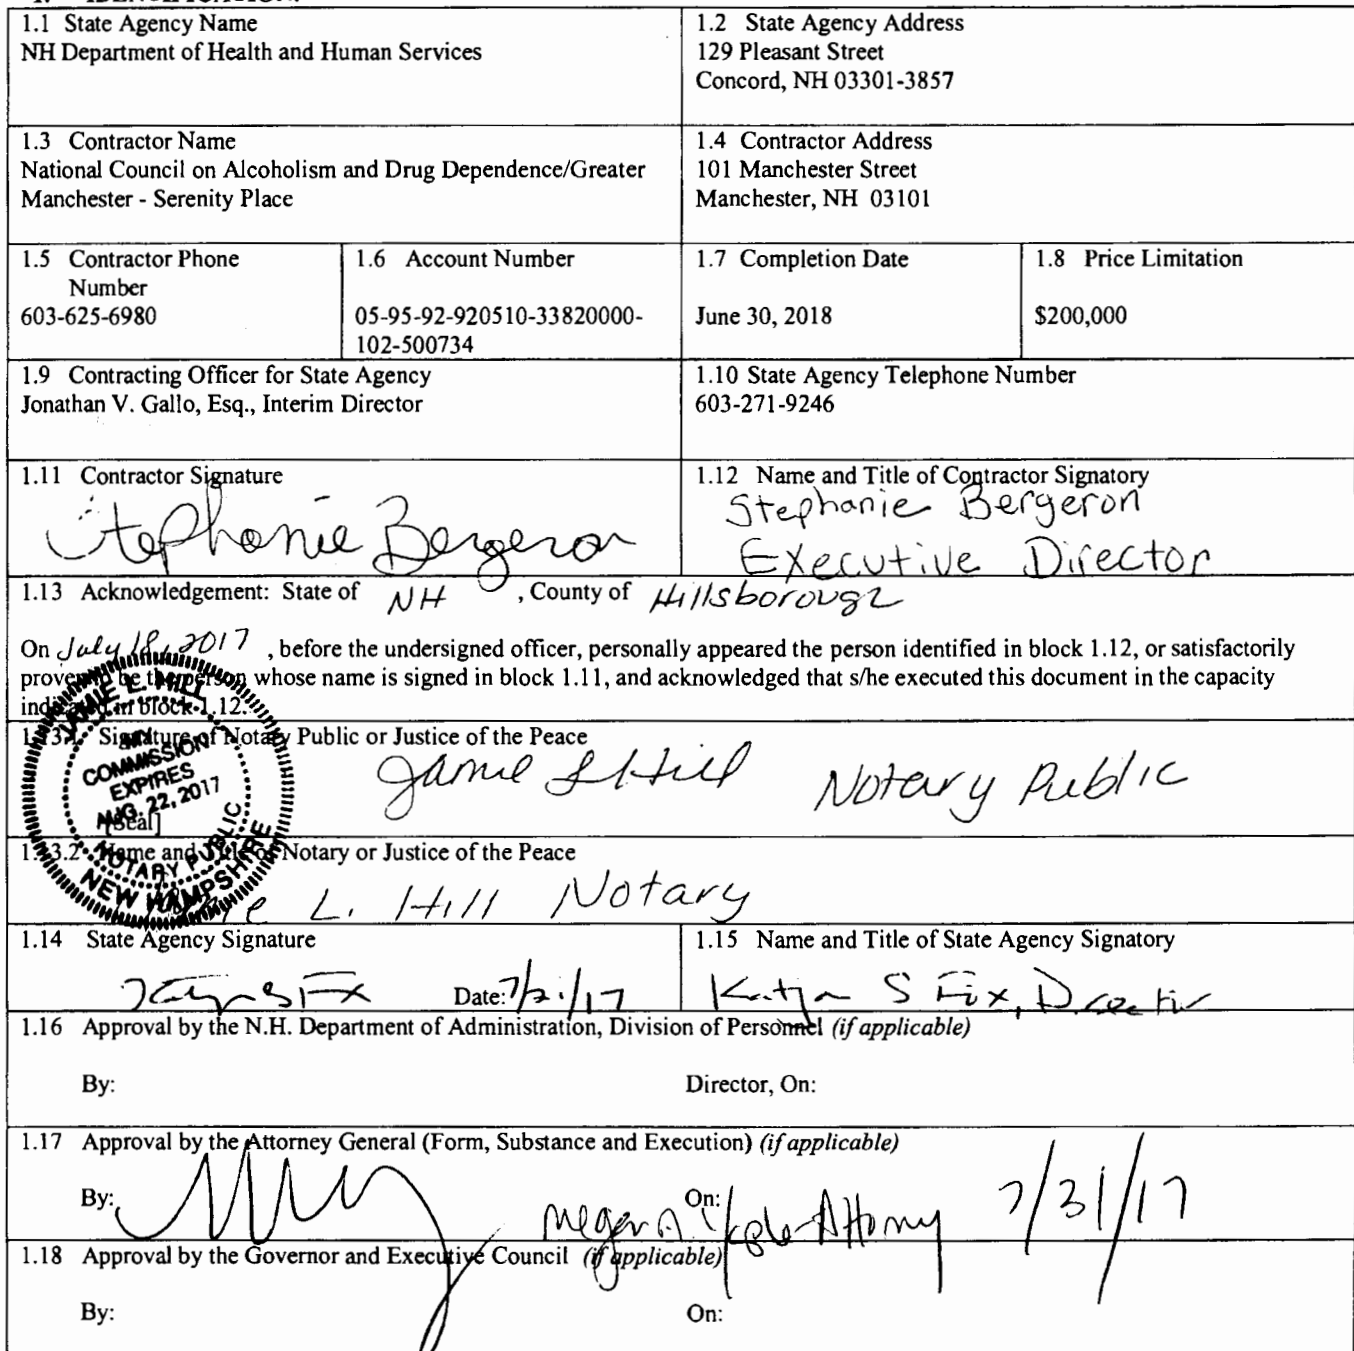 1.1 State Agency Name
NH Department of Health and Human Services
1.2 State Agency Address
129 Pleasant Street
Concord, NH 03301-3857
1.3 Contractor Name
National Council on Alcoholism and Drug Dependence/Greater
Manchester - Serenity Place
1.4 Contractor Address
101 Manchester Street
Manchester, NH 03101
1.5 Contractor Phone
Number
603-625-6980
1.6 Account Number
05-95-92-920510-33820000-
102-500734
1.7 Completion Date
June 30, 2018
1.8 Price Limitation
$200,000
1.9 Contracting Officer for State Agency
Jonathan V. Gallo, Esq., Interim Director
1.10 State Agency Telephone Number
603-271-9246
1.11 Contractor Signature
Stephanie Bergeron
1.12 Name and Title of Contractor Signatory
Stephanie Bergeron
Executive Director
1.13 Acknowledgement: State of NH , County of Hillsborough
On July 18, 2017 , before the undersigned officer, personally appeared the person identified in block 1.12, or satisfactorily
proven to be the person whose name is signed in block 1.11, and acknowledged that s/he executed this document in the capacity
indicated in block 1.12.
1.13.1 Signature of Notary Public or Justice of the Peace
Jamie L Hill Notary Public
[Seal]
JAMIE L. HILL
MY
COMMISSION
EXPIRES
AUG. 22, 2017
NOTARY PUBLIC
NEW HAMPSHIRE
1.13.2 Name and Title of Notary or Justice of the Peace
Jamie L. Hill Notary
1.14 State Agency Signature
Date: 7/21/17
1.15 Name and Title of State Agency Signatory
Katja S Fox, Director
1.16 Approval by the N.H. Department of Administration, Division of Personnel (if applicable)
By: Director, On:
1.17 Approval by the Attorney General (Form, Substance and Execution) (if applicable)
By: On: Attorney 7/31/17
1.18 Approval by the Governor and Executive Council (if applicable)
By: On: